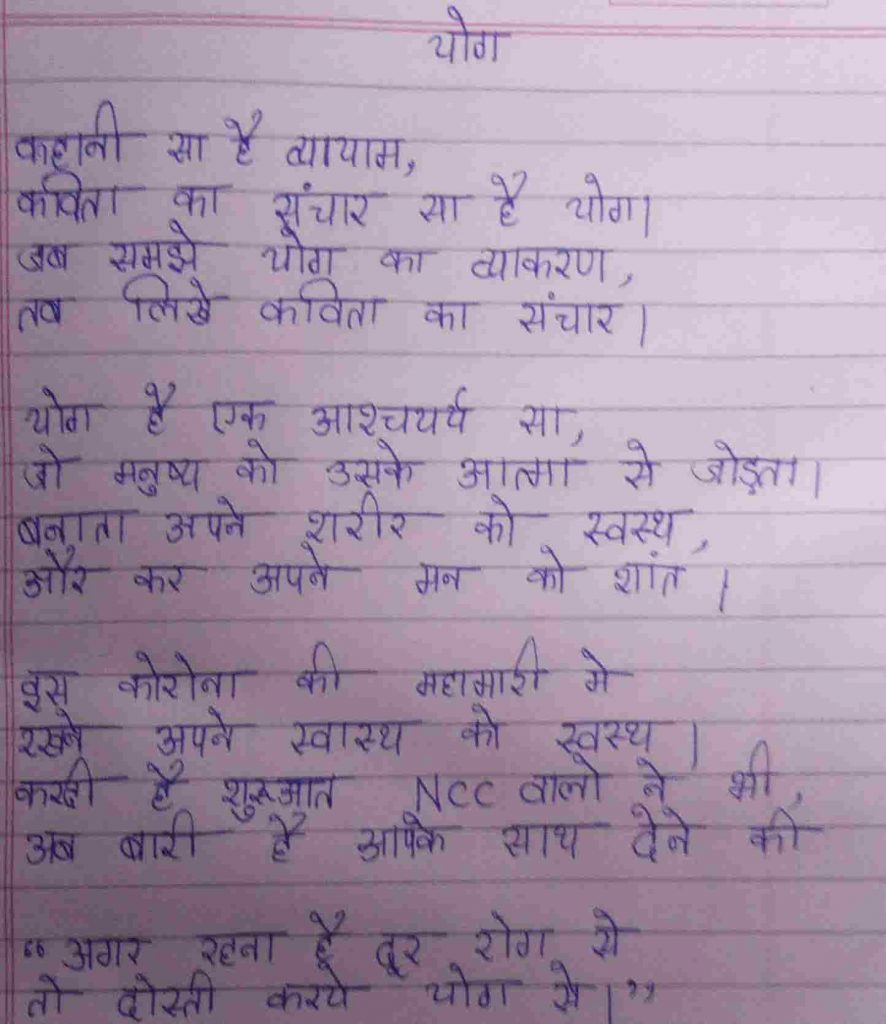 योग
कहानी सा है व्यायाम,
कविता का संचार सा है योग।
जब समझे योग का व्याकरण,
तब लिखे कविता का संचार।
योग है एक आश्चयर्य सा,
जो मनुष्य को उसके आत्मा से जोड़ता।
बनाता अपने शरीर को स्वस्थ,
और कर अपने मन को शांत।
इस कोरोना की महामारी मे
रखने अपने स्वास्थ को स्वस्थ।
करदी है शुरूआत NCC वालो ने भी,
अब बारी है आपके साथ देने की
"अगर रहना है दूर रोग से
तो दोस्ती करये योग से।"